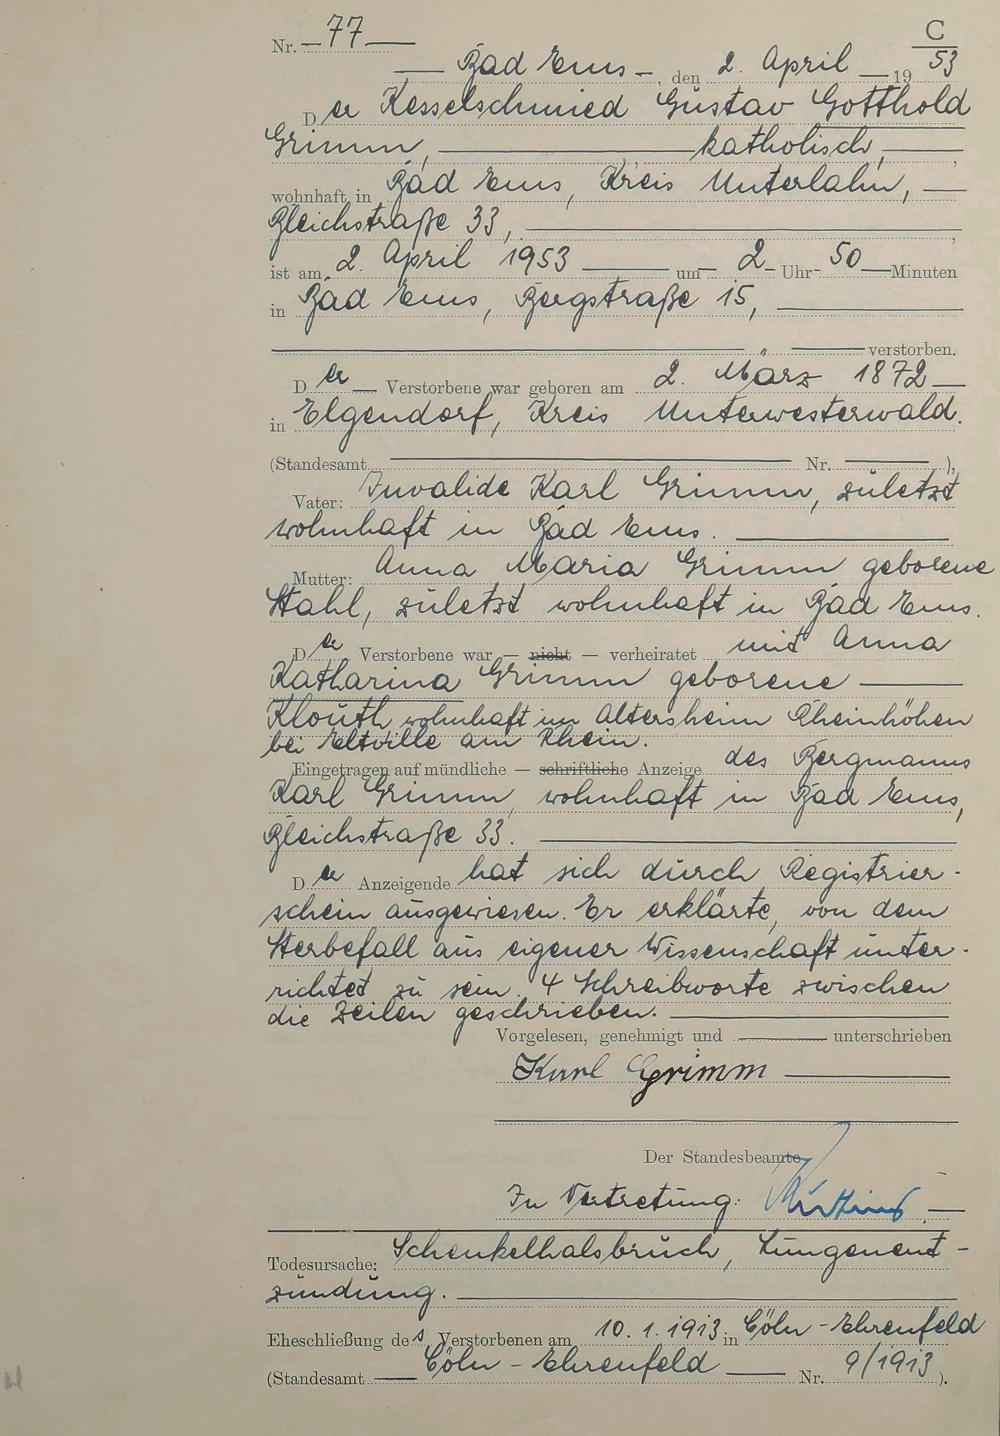 Nr. 77 C
Bad Ems, den 2. April 19 53
Der Kesselschmied Gustav Gotthold
Grimm, katholisch,
wohnhaft in Bad Ems, Kreis Unterlahn,
Bleichstraße 33,
ist am 2. April 1953 um 2 Uhr 50 Minuten
in Bad Ems, Bergstraße 15,
verstorben.
Der Verstorbene war geboren am 2. März 1872
in Elgendorf, Kreis Unterwesterwald.
(Standesamt Nr. ).
Vater: Invalide Karl Grimm, zuletzt
wohnhaft in Bad Ems.
Mutter: Anna Maria Grimm geborene
Stahl, zuletzt wohnhaft in Bad Ems.
Der Verstorbene war — nicht — verheiratet mit Anna
Katharina Grimm geborene
Klouth wohnhaft im Altersheim Rheinhöhen
bei Eltville am Rhein.
Eingetragen auf mündliche — schriftliche Anzeige des Bergmanns
Karl Grimm, wohnhaft in Bad Ems,
Bleichstraße 33.
Der Anzeigende hat sich durch Registrier-
schein ausgewiesen. Er erklärte, von dem
Sterbefall aus eigener Wissenschaft unter-
richtet zu sein. 4 Schreibworte zwischen
die Zeilen geschrieben.
Vorgelesen, genehmigt und unterschrieben
Karl Grimm
Der Standesbeamte
In Vertretung:
Todesursache: Schenkelhalsbruch, Lungenent-
zündung.
Eheschließung des Verstorbenen am 10.1.1913 in Cöln-Ehrenfeld
(Standesamt Cöln-Ehrenfeld Nr. 9/1913).